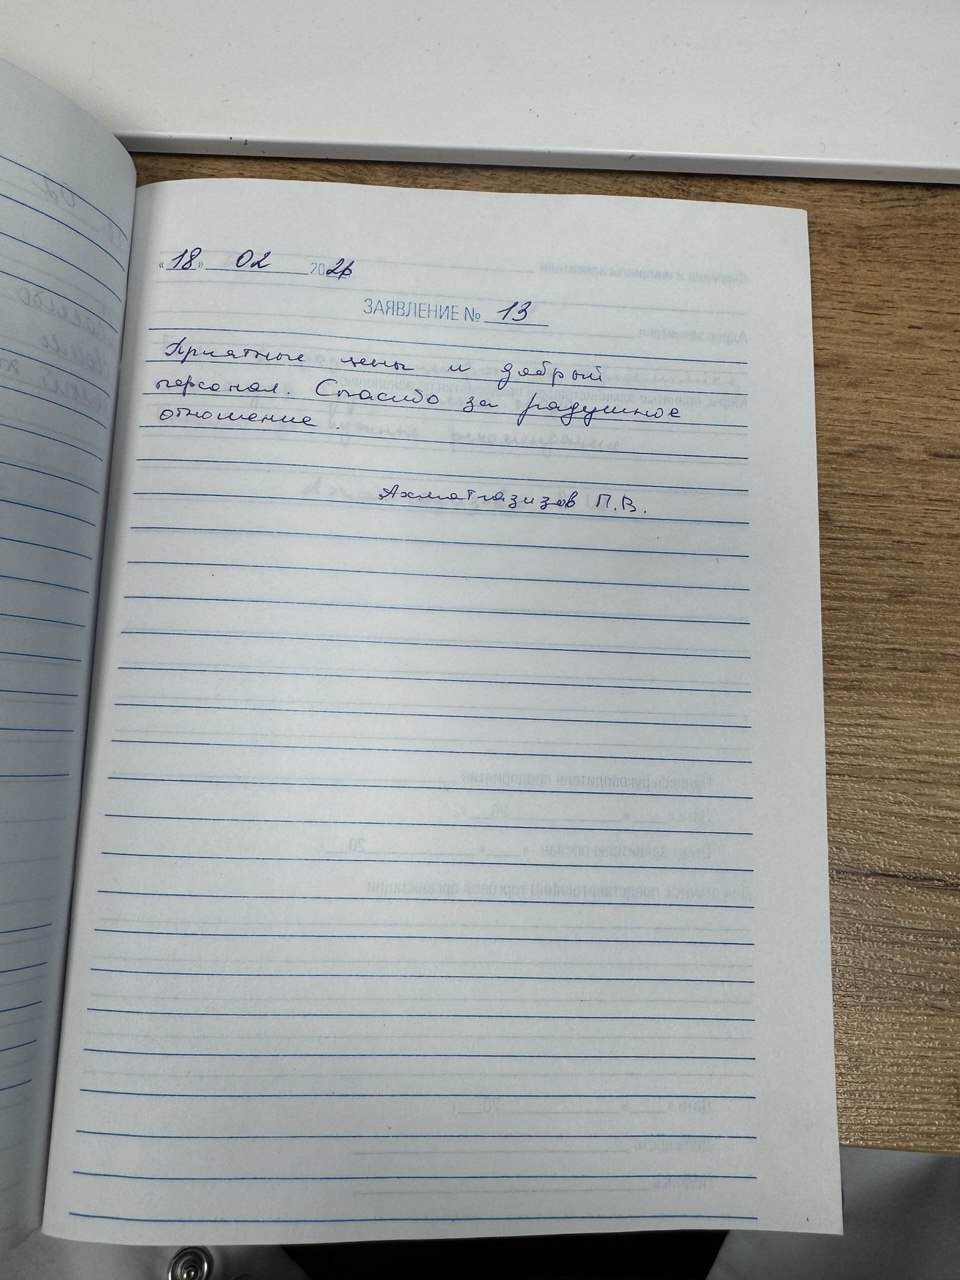 «18» 02 2026
ЗАЯВЛЕНИЕ № 13
Приятные цены и добрый
персонал. Спасибо за радушное
отношение.
Ахматгазизов П.В.